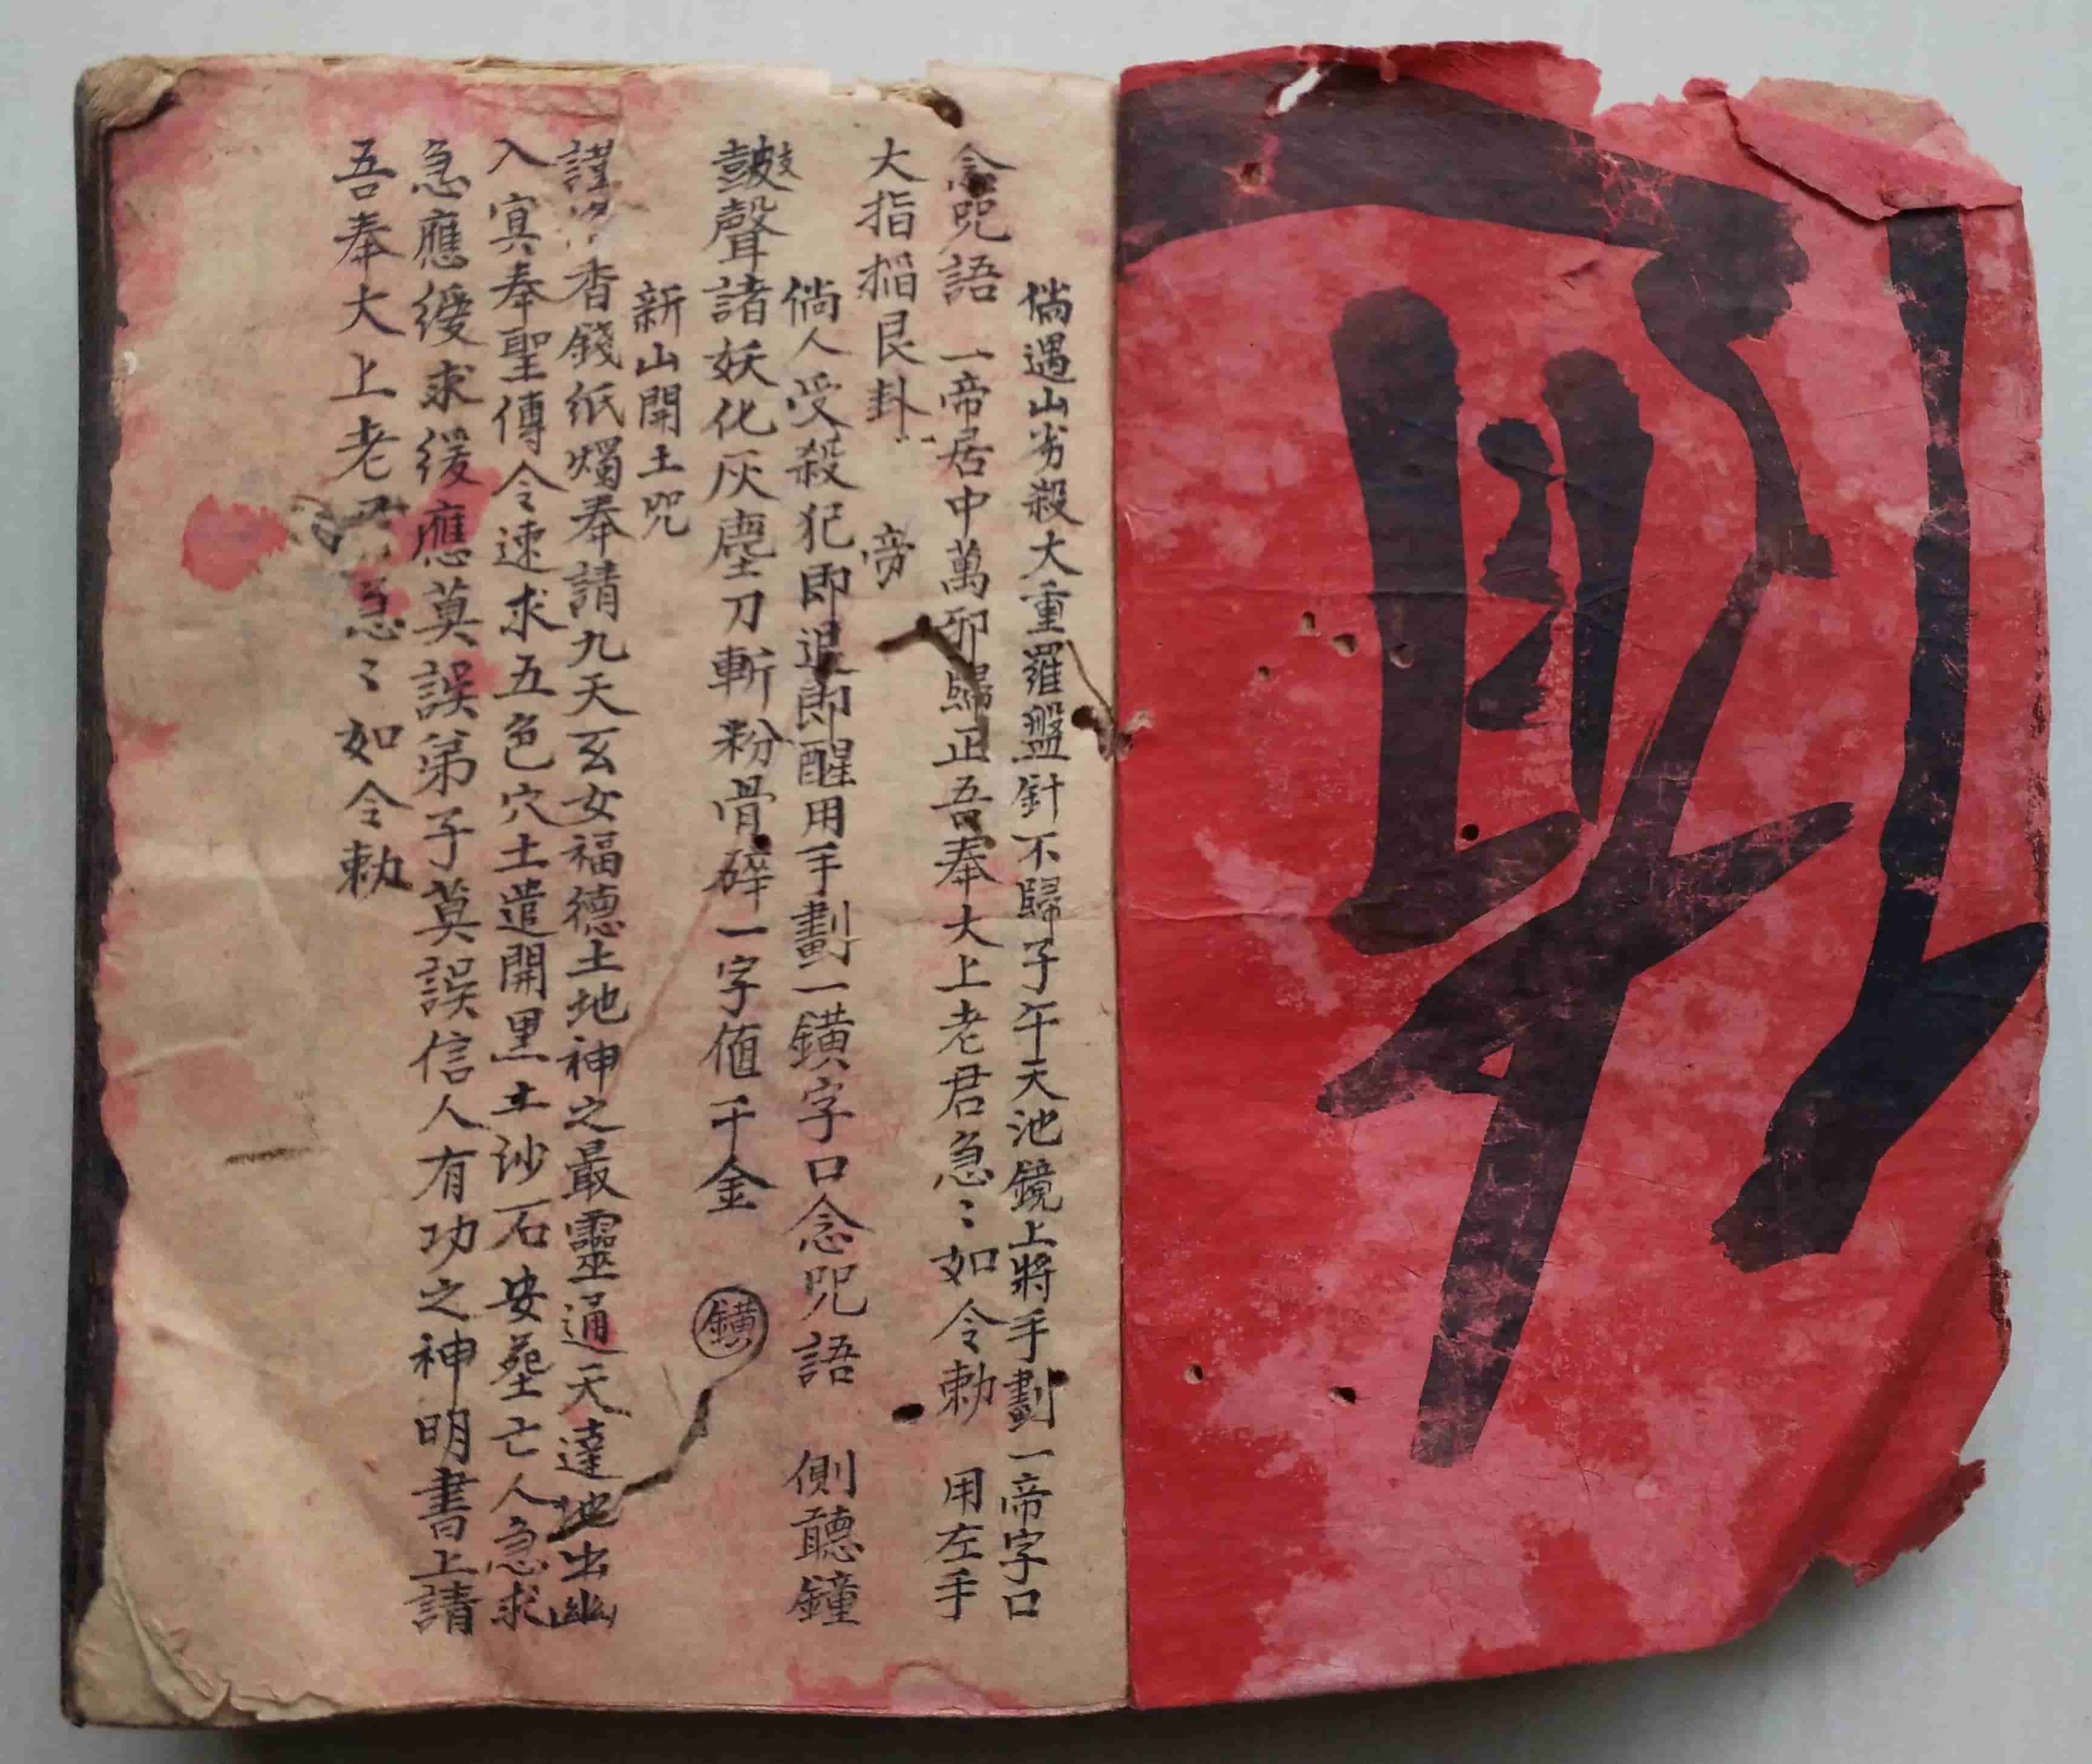 倘遇山劣殺大重羅盤針不歸子午天池鏡上將手劃一帝字口
念咒語 一帝居中萬邪歸正吾奉大上老君急〻如令勅 用左手
大指掐艮卦 帝
倘人受殺犯即退即醒用手劃一鐄字口念咒語 側聽鐘
鼓聲諸妖化灰塵刀斬粉骨碎一字值千金 鐄
新山開土咒
謹 香錢紙燭奉請九天玄女福德土地神之最靈通天達地出幽
入冥奉聖傳令速求五色穴土遣開黑土沙石安葬亡人急求
急應緩求緩應莫誤弟子莫誤信人有功之神明書上請
吾奉大上老 急〻如令勅